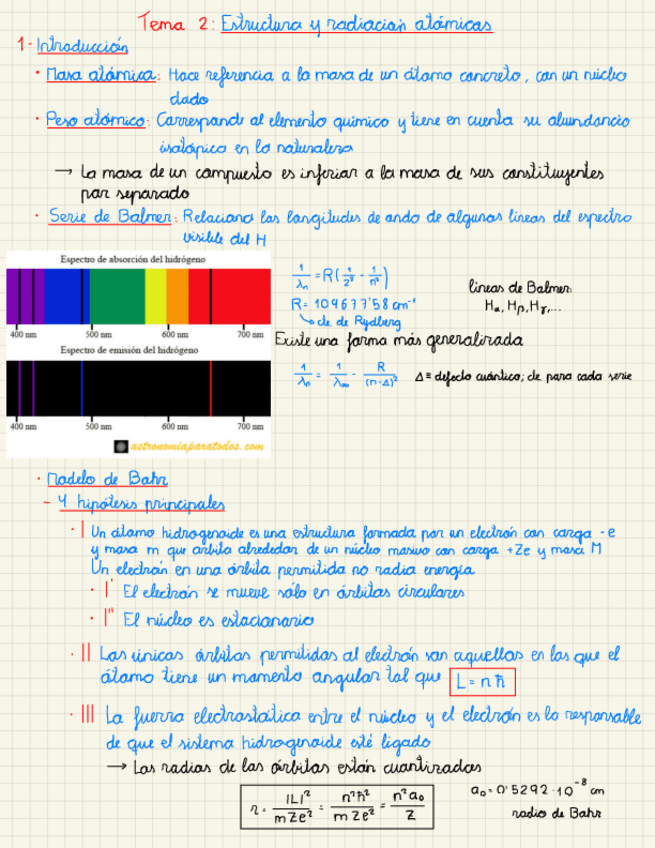 Tema 2: Estructura y radiación atómicas
1- Introducción
· Masa atómica: Hace referencia a la masa de un átomo concreto, con un núcleo
dado
· Peso atómico: Corresponde al elemento químico y tiene en cuenta su abundancia
isotópica en la naturaleza
→ La masa de un compuesto es inferior a la masa de sus constituyentes
por separado
· Serie de Balmer: Relaciona las longitudes de onda de algunas líneas del espectro
visible del H
Espectro de absorción del hidrógeno
400 nm 500 nm 600 nm 700 nm
Espectro de emisión del hidrógeno
400 nm 500 nm 600 nm 700 nm
astronomiaparatodos.com
1/λn = R(1/2² - 1/n²)
R = 109677'58 cm⁻¹
cte. de Rydberg
líneas de Balmer:
Hα, Hβ, Hγ,...
Existe una forma más generalizada
1/λn = 1/λ∞ - R/(n-Δ)²
Δ ≡ defecto cuántico; cte para cada serie
· Modelo de Bohr
- 4 hipótesis principales
· I Un átomo hidrogenoide es una estructura formada por un electrón con carga -e
y masa m que orbita alrededor de un núcleo masivo con carga +Ze y masa M
Un electrón en una órbita permitida no radia energía
· I' El electrón se mueve sólo en órbitas circulares
· I'' El núcleo es estacionario
· II Las únicas órbitas permitidas al electrón son aquellas en las que el
átomo tiene un momento angular tal que L = nħ
· III La fuerza electrostática entre el núcleo y el electrón es la responsable
de que el sistema hidrogenoide esté ligado
→ Los radios de las órbitas están cuantizados
r = |L|²/mZe² = n²ħ²/mZe² = n²a₀/Z
a₀ = 0'5292·10⁻⁸ cm
radio de Bohr